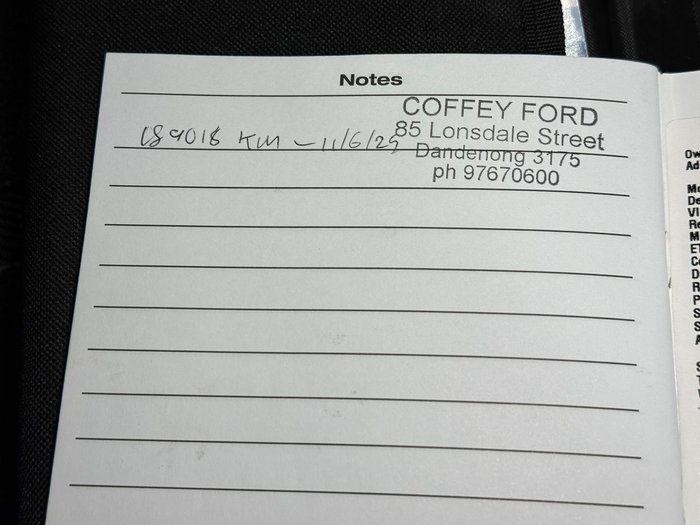 Notes
COFFEY FORD
85 Lonsdale Street
189018 KM - 11/6/25
Dandenong 3175
ph 97670600
Ow
Ad
Mo
De
VI
Re
M
ET
Co
D
R
P
S
S
A
S
T